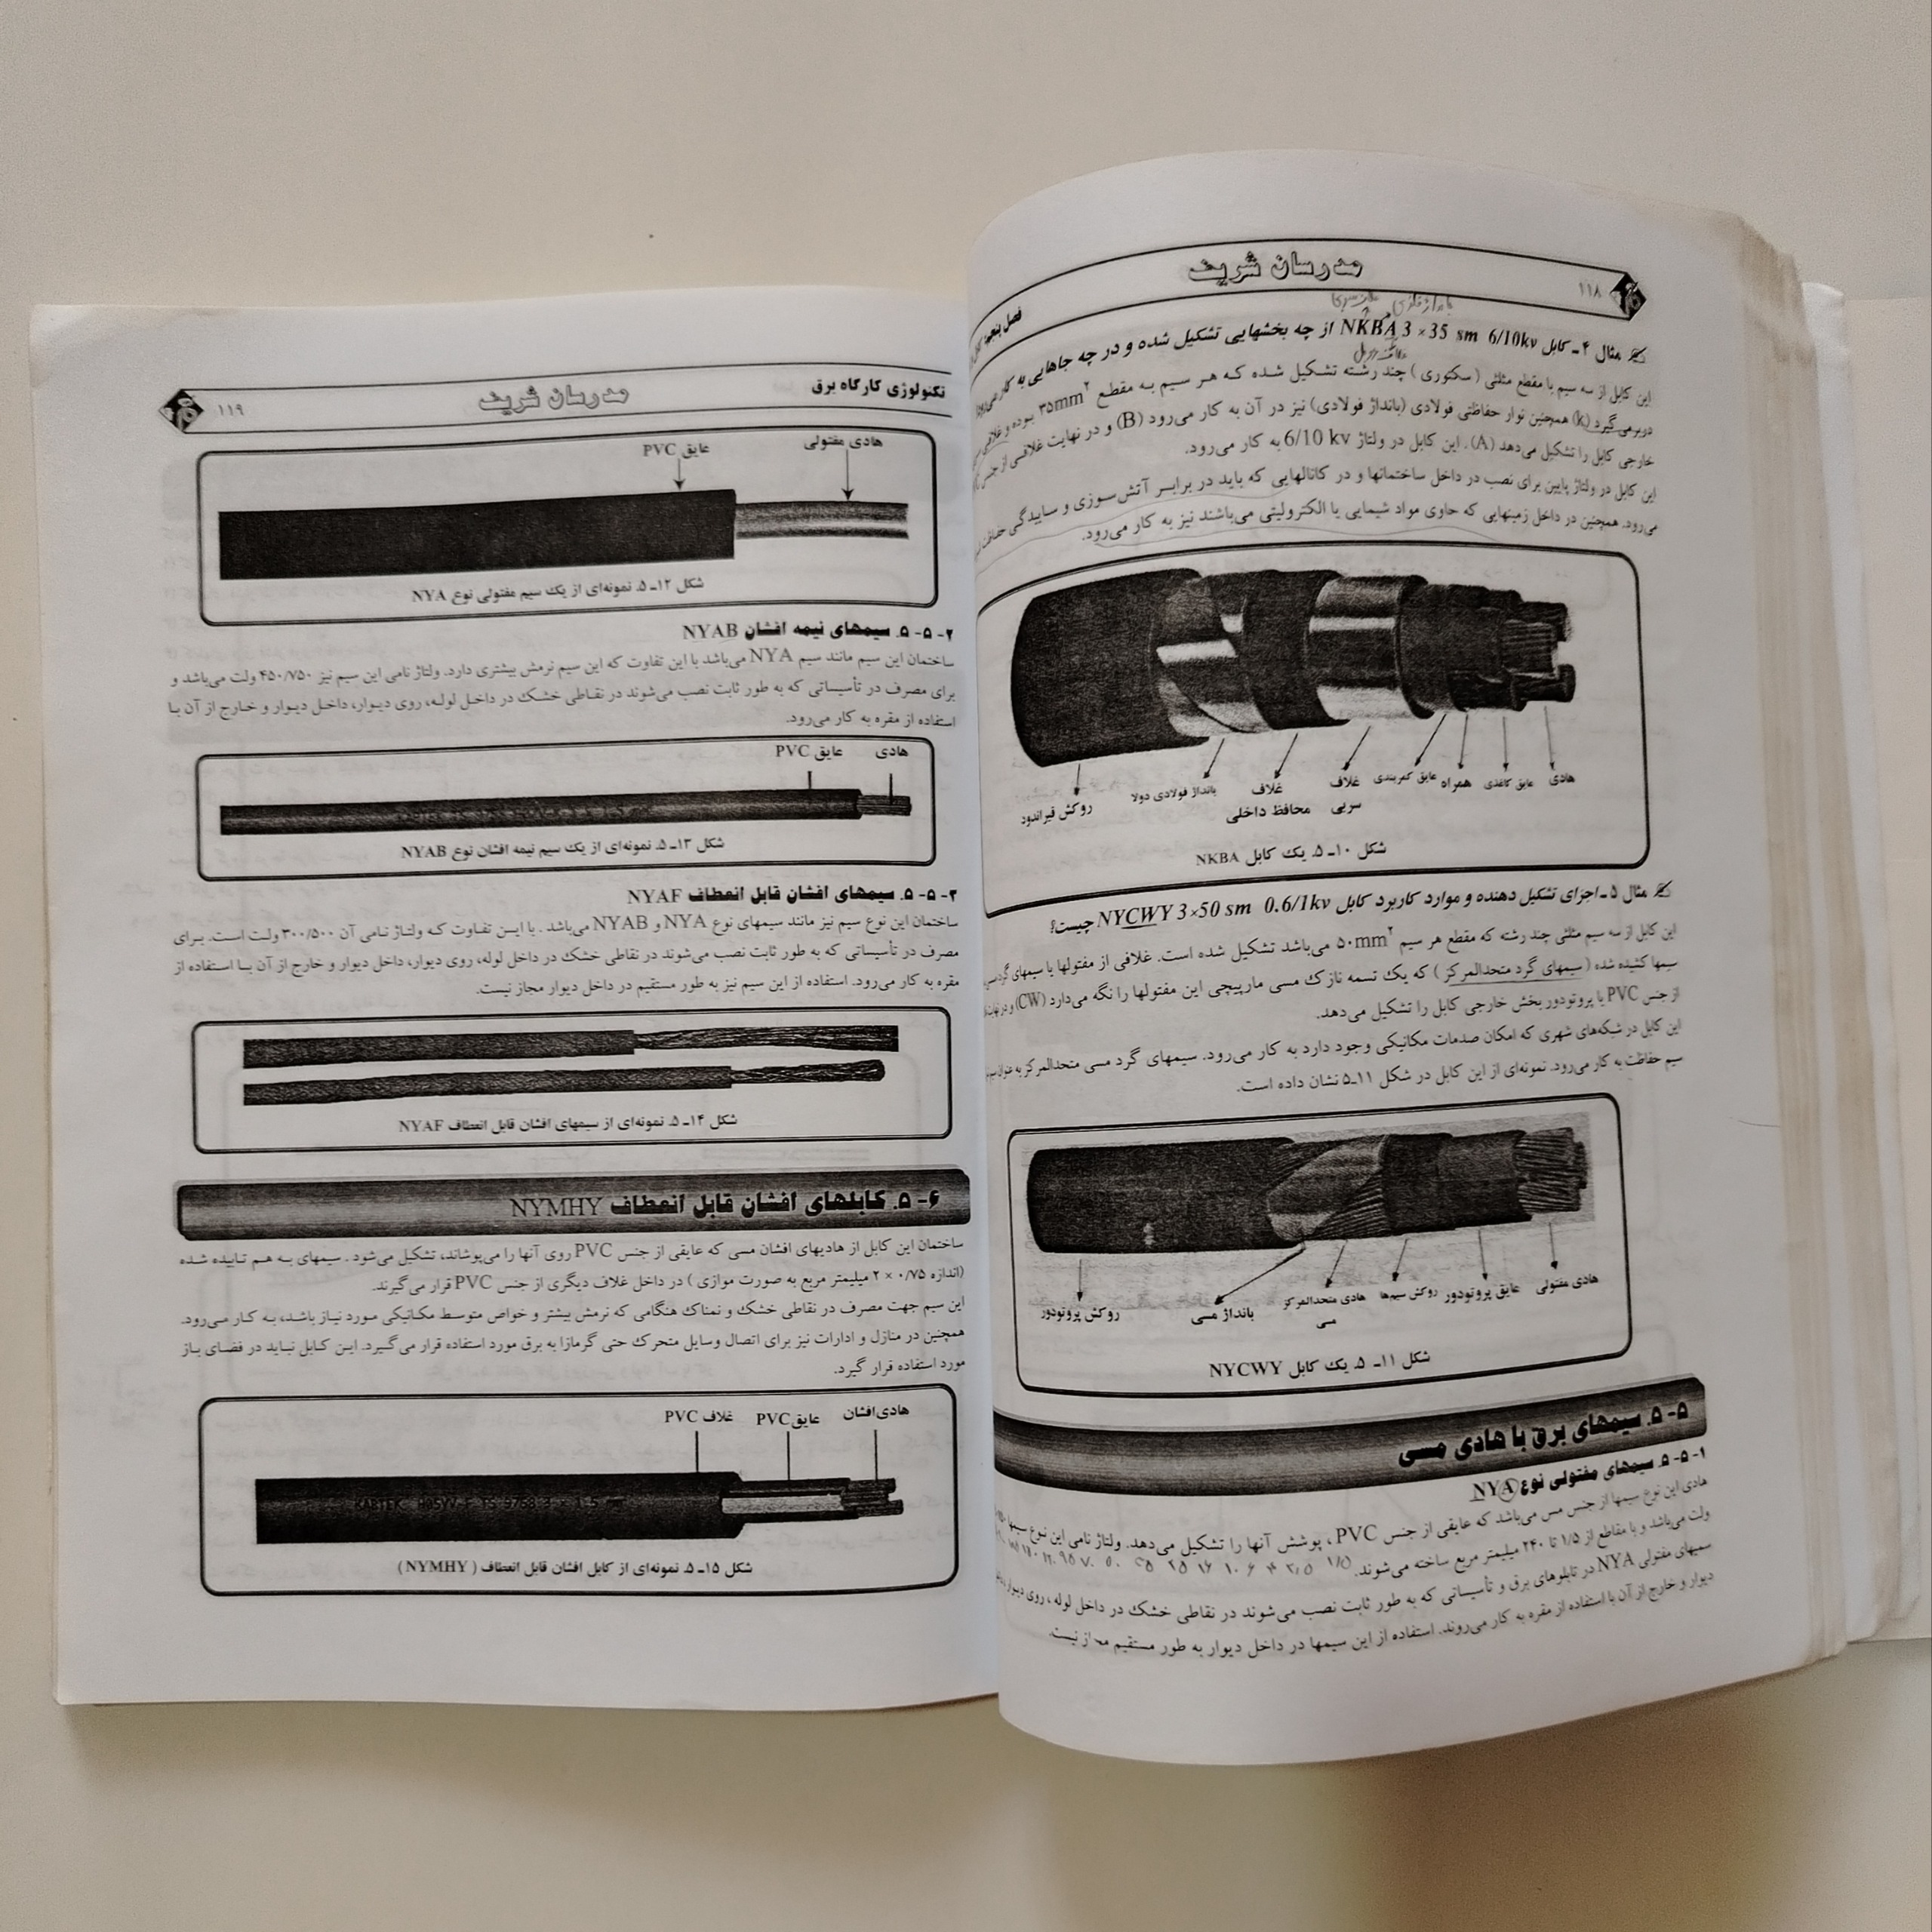 مدرسان شریف
۱۱۸
فصل پنجم:
مثال ۴ـ کابل NKBA 3 ×35 sm 6/10kv از چه بخشهایی تشکیل شده و در چه جاهایی به کار می‌رود
این کابل از سه سیم با مقطع مثلثی (سکتوری) چند رشته تشکیل شده که هر سیم به مقطع ۳۵mm۲ بوده و غلافی
دربرمی‌گیرد (k) همچنین نوار حفاظتی فولادی (بانداژ فولادی) نیز در آن به کار می‌رود (B) و در نهایت غلافی از جنس
خارجی کابل را تشکیل می‌دهد (A). این کابل در ولتاژ 6/10 kv به کار می‌رود.
این کابل در ولتاژ پایین برای نصب در داخل ساختمانها و در کانالهایی که باید در برابر آتش‌سوزی و ساییدگی حفاظت
می‌رود. همچنین در داخل زمینهایی که حاوی مواد شیمیایی یا الکترولیتی می‌باشند نیز به کار می‌رود.
هادی
عایق کاغذی
همراه
عایق کمربندی
غلاف سربی
غلاف محافظ داخلی
بانداژ فولادی دولا
روکش قیراندود
شکل ۱۰ـ ۵. یک کابل NKBA
مثال ۵ ـ اجزای تشکیل دهنده و موارد کاربرد کابل NYCWY 3×50 sm 0.6/1kv چیست؟
این کابل از سه سیم مثلثی چند رشته که مقطع هر سیم ۵۰mm۲ می‌باشد تشکیل شده است. غلافی از مفتولها یا سیمهای گرد
سیمها کشیده شده (سیمهای گرد متحدالمرکز) که یک تسمه نازک مسی مارپیچی این مفتولها را نگه می‌دارد (CW) و در نهایت
از جنس PVC یا پروتودور بخش خارجی کابل را تشکیل می‌دهد.
این کابل در شبکه‌های شهری که امکان صدمات مکانیکی وجود دارد به کار می‌رود. سیمهای گرد مسی متحدالمرکز به عنوان
سیم حفاظت به کار می‌رود. نمونه‌ای از این کابل در شکل ۱۱ـ۵ نشان داده است.
هادی مفتولی
عایق پروتودور
روکش سیم‌ها
هادی متحدالمرکز مسی
بانداژ مسی
روکش پروتودور
شکل ۱۱ـ ۵. یک کابل NYCWY
۵- ۵. سیمهای برق با هادی مسی
۱- ۵- ۵. سیمهای مفتولی نوع NYA
هادی این نوع سیمها از جنس مس می‌باشد که عایقی از جنس PVC، پوشش آنها را تشکیل می‌دهد. ولتاژ نامی این نوع سیمها
ولت می‌باشد و با مقاطع از ۱/۵ تا ۲۴۰ میلیمتر مربع ساخته می‌شوند.
۱/۵ ۲/۵ ۴ ۶ ۱۰ ۱۶ ۲۵ ۳۵ ۵۰ ۷۰ ۹۵ ۱۲۰
سیمهای مفتولی NYA در تابلوهای برق و تأسیساتی که به طور ثابت نصب می‌شوند در نقاطی خشک در داخل لوله، روی دیوار،
دیوار و خارج از آن با استفاده از مقره به کار می‌روند. استفاده از این سیمها در داخل دیوار به طور مستقیم مجاز نیست.
تکنولوژی کارگاه برق
مدرسان شریف
۱۱۹
هادی مفتولی
عایق PVC
شکل ۱۲ـ ۵. نمونه‌ای از یک سیم مفتولی نوع NYA
۲- ۵- ۵. سیمهای نیمه افشان NYAB
ساختمان این سیم مانند سیم NYA می‌باشد با این تفاوت که این سیم نرمش بیشتری دارد. ولتاژ نامی این سیم نیز ۴۵۰/۷۵۰ ولت می‌باشد و
برای مصرف در تأسیساتی که به طور ثابت نصب می‌شوند در نقاطی خشک در داخل لوله، روی دیوار، داخل دیوار و خارج از آن با
استفاده از مقره به کار می‌رود.
هادی
عایق PVC
شکل ۱۳ـ ۵. نمونه‌ای از یک سیم نیمه افشان نوع NYAB
۳- ۵- ۵. سیمهای افشان قابل انعطاف NYAF
ساختمان این نوع سیم نیز مانند سیمهای نوع NYA و NYAB می‌باشد. با این تفاوت که ولتاژ نامی آن ۳۰۰/۵۰۰ ولت است. برای
مصرف در تأسیساتی که به طور ثابت نصب می‌شوند در نقاطی خشک در داخل لوله، روی دیوار، داخل دیوار و خارج از آن با استفاده از
مقره به کار می‌رود. استفاده از این سیم نیز به طور مستقیم در داخل دیوار مجاز نیست.
شکل ۱۴ـ ۵. نمونه‌ای از سیمهای افشان قابل انعطاف NYAF
۶- ۵. کابلهای افشان قابل انعطاف NYMHY
ساختمان این کابل از هادیهای افشان مسی که عایقی از جنس PVC روی آنها را می‌پوشاند، تشکیل می‌شود. سیمهای به هم تابیده شده
(اندازه ۰/۷۵ × ۲ میلیمتر مربع به صورت موازی) در داخل غلاف دیگری از جنس PVC قرار می‌گیرند.
این سیم جهت مصرف در نقاطی خشک و نمناک هنگامی که نرمش بیشتر و خواص متوسط مکانیکی مورد نیاز باشد، به کار می‌رود.
همچنین در منازل و ادارات نیز برای اتصال وسایل متحرک حتی گرمازا به برق مورد استفاده قرار می‌گیرد. این کابل نباید در فضای باز
مورد استفاده قرار گیرد.
هادی افشان
عایق PVC
غلاف PVC
KABTEK H05VV-F TS 9768 3 × 1.5
شکل ۱۵ـ ۵. نمونه‌ای از کابل افشان قابل انعطاف (NYMHY)